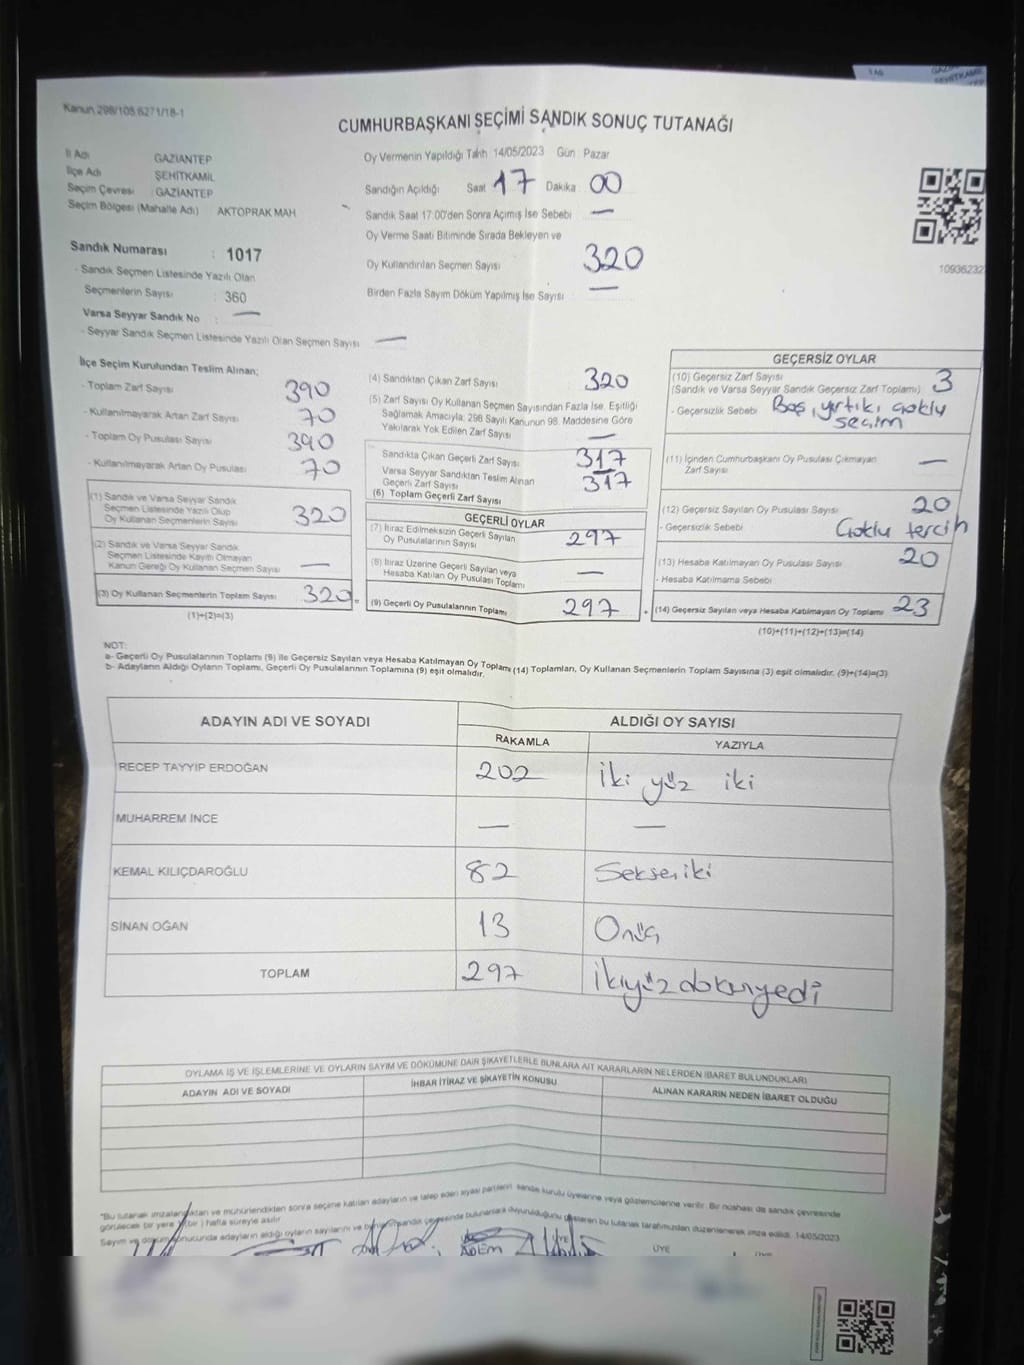 Kanun 298/105.6271/18-1
CUMHURBAŞKANI SEÇİMİ SANDIK SONUÇ TUTANAĞI
İl Adı GAZİANTEP
İlçe Adı ŞEHİTKAMİL
Seçim Çevresi : GAZİANTEP
Seçim Bölgesi (Mahalle Adı) AKTOPRAK MAH
Sandık Numarası : 1017
- Sandık Seçmen Listesinde Yazılı Olan
Seçmenlerin Sayısı : 360
Varsa Seyyar Sandık No : —
- Seyyar Sandık Seçmen Listesinde Yazılı Olan Seçmen Sayısı —
Oy Vermenin Yapıldığı Tarih 14/05/2023 Gün Pazar
Sandığın Açıldığı Saat 17 Dakika 00
Sandık Saat 17.00'den Sonra Açılmış İse Sebebi —
Oy Verme Saati Bitiminde Sırada Bekleyen ve
Oy Kullandırılan Seçmen Sayısı 320
Birden Fazla Sayım Döküm Yapılmış İse Sayısı —
10936232
İlçe Seçim Kurulundan Teslim Alınan;
- Toplam Zarf Sayısı 390
- Kullanılmayarak Artan Zarf Sayısı 70
- Toplam Oy Pusulası Sayısı 390
- Kullanılmayarak Artan Oy Pusulası 70
(1) Sandık ve Varsa Seyyar Sandık
Seçmen Listesinde Yazılı Olup
Oy Kullanan Seçmenlerin Sayısı 320
(2) Sandık ve Varsa Seyyar Sandık
Seçmen Listesinde Kayıtlı Olmayan
Kanun Gereği Oy Kullanan Seçmen Sayısı —
(3) Oy Kullanan Seçmenlerin Toplam Sayısı 320
(1)+(2)=(3)
(4) Sandıktan Çıkan Zarf Sayısı 320
(5) Zarf Sayısı Oy Kullanan Seçmen Sayısından Fazla İse, Eşitliği
Sağlamak Amacıyla; 298 Sayılı Kanunun 98. Maddesine Göre
Yakılarak Yok Edilen Zarf Sayısı —
Sandıkta Çıkan Geçerli Zarf Sayısı 317
Varsa Seyyar Sandıktan Teslim Alınan
Geçerli Zarf Sayısı —
(6) Toplam Geçerli Zarf Sayısı 317
GEÇERLİ OYLAR
(7) İtiraz Edilmeksizin Geçerli Sayılan
Oy Pusulalarının Sayısı 297
(8) İtiraz Üzerine Geçerli Sayılan veya
Hesaba Katılan Oy Pusulası Toplamı —
(9) Geçerli Oy Pusulalarının Toplamı 297
GEÇERSİZ OYLAR
(10) Geçersiz Zarf Sayısı 3
(Sandık ve Varsa Seyyar Sandık Geçersiz Zarf Toplamı)
- Geçersizlik Sebebi Boş, yırtık, çoklu
seçim
(11) İçinden Cumhurbaşkanı Oy Pusulası Çıkmayan
Zarf Sayısı —
(12) Geçersiz Sayılan Oy Pusulası Sayısı 20
- Geçersizlik Sebebi Çoklu tercih
(13) Hesaba Katılmayan Oy Pusulası Sayısı 20
- Hesaba Katılmama Sebebi
(14) Geçersiz Sayılan veya Hesaba Katılmayan Oy Toplamı 23
(10)+(11)+(12)+(13)=(14)
NOT:
a- Geçerli Oy Pusulalarının Toplamı (9) ile Geçersiz Sayılan veya Hesaba Katılmayan Oy Toplamı (14) Toplamları, Oy Kullanan Seçmenlerin Toplam Sayısına (3) eşit olmalıdır. (9)+(14)=(3)
b- Adayların Aldığı Oyların Toplamı, Geçerli Oy Pusulalarının Toplamına (9) eşit olmalıdır.
ADAYIN ADI VE SOYADI ALDIĞI OY SAYISI
RAKAMLA YAZIYLA
RECEP TAYYİP ERDOĞAN 202 İki yüz iki
MUHARREM İNCE — —
KEMAL KILIÇDAROĞLU 82 Seksen iki
SİNAN OĞAN 13 Onüç
TOPLAM 297 İkiyüzdoksanyedi
OYLAMA İŞ VE İŞLEMLERİNE VE OYLARIN SAYIM VE DÖKÜMÜNE DAİR ŞİKAYETLERLE BUNLARA AİT KARARLARIN NELERDEN İBARET BULUNDUKLARI
ADAYIN ADI VE SOYADI İHBAR İTİRAZ VE ŞİKAYETİN KONUSU ALINAN KARARIN NEDEN İBARET OLDUĞU
"Bu tutanak imzalandıktan ve mühürlendikten sonra seçime katılan adayların ve talep eden siyasi partilerin sandık kurulu üyelerine veya gözlemcilerine verilir. Bir nüshası da sandık çevresinde
görülecek bir yere 1 (bir) hafta süreyle asılır
Sayım ve döküm sonucunda adayların aldığı oyların sayılarını ve bunların sandık çevresinde bulunanlara duyurulduğunu gösteren bu tutanak tarafımızdan düzenlenerek imza edildi. 14/05/2023
ADEM ÜYE ÜYE